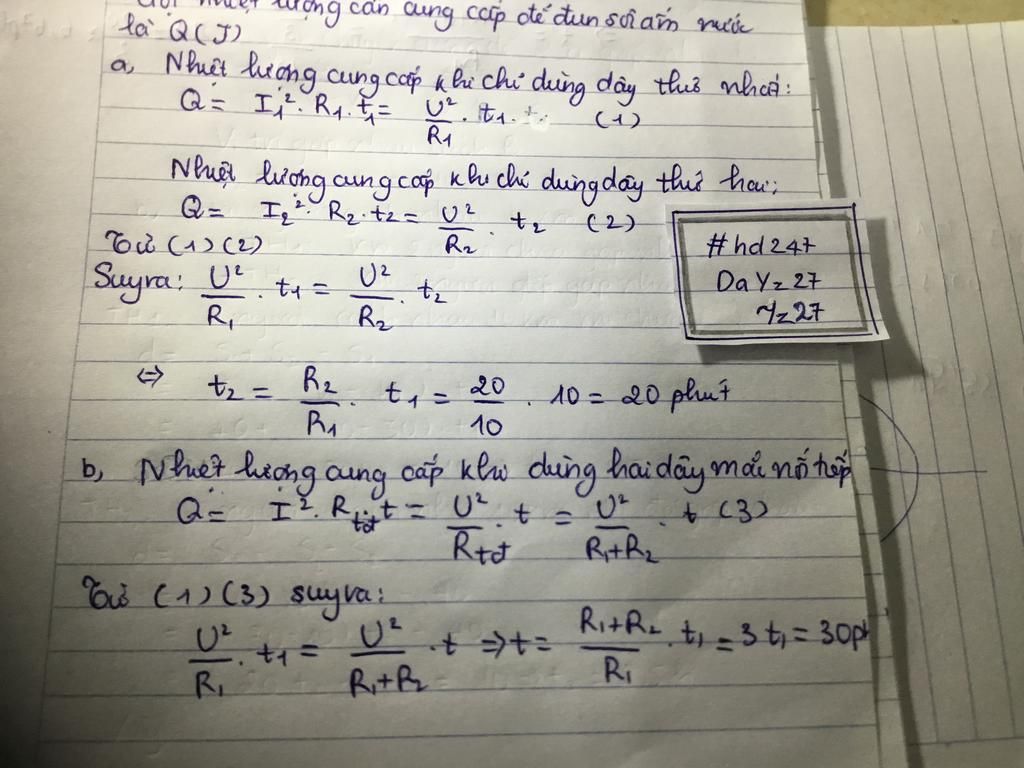 Gọi nhiệt lượng cần cung cấp để đun sôi ấm nước
là Q(J)
a, Nhiệt lượng cung cấp khi chỉ dùng dây thứ nhất:
Q = I₁². R₁. t₁ = U²/R₁ . t₁ (1)
Nhiệt lượng cung cấp khi chỉ dùng dây thứ hai:
Q = I₂². R₂. t₂ = U²/R₂ . t₂ (2)
Từ (1) (2)
Suy ra: U²/R₁ . t₁ = U²/R₂ . t₂
⇔ t₂ = R₂/R₁ . t₁ = 20/10 . 10 = 20 phút
b, Nhiệt lượng cung cấp khi dùng hai dây mắc nối tiếp
Q = I². Rtđ. t = U²/Rtđ . t = U²/R₁+R₂ . t (3)
Từ (1) (3) suy ra:
U²/R₁ . t₁ = U²/R₁+R₂ . t ⇒ t = R₁+R₂/R₁ . t₁ = 3t₁ = 30ph
#hd247
DaYz27
Yz27